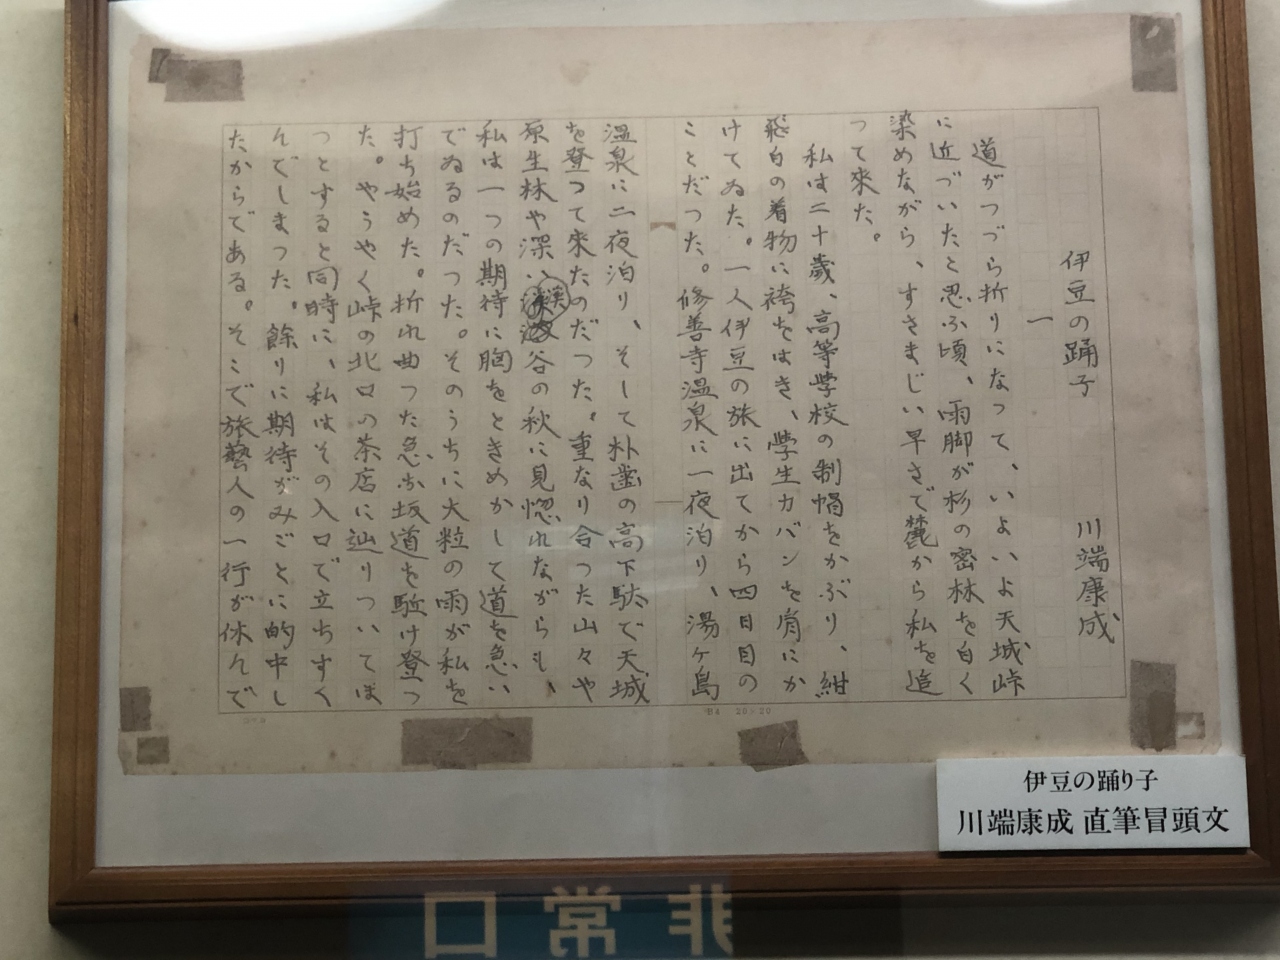 伊豆の踊子
川端康成
一
道がつづら折りになって、いよいよ天城峠
に近づいたと思ふ頃、雨脚が杉の密林を白く
染めながら、すさまじい早さで麓から私を追
って來た。
私は二十歳、高等學校の制帽をかぶり、紺
飛白の着物に袴をはき、學生カバンを肩にか
けてゐた。一人伊豆の旅に出てから四日目の
ことだった。修善寺溫泉に一夜泊り、湯ヶ島
溫泉に二夜泊り、そして朴齒の高下駄で天城
を登って來たのだった。重なり合った山々や
原生林や深い溪谷の秋に見惚れながらも、
私は一つの期待に胸をときめかして道を急い
でゐるのだった。そのうちに大粒の雨が私を
打ち始めた。折れ曲った急な坂道を駈け登っ
た。やうやく峠の北口の茶店に辿りついてほ
っとすると同時に、私はその入口で立ちすく
んでしまった。餘りに期待がみごとに的中し
たからである。そこで旅藝人の一行が休んで
B4 20×20
伊豆の踊り子
川端康成 直筆冒頭文
非常口